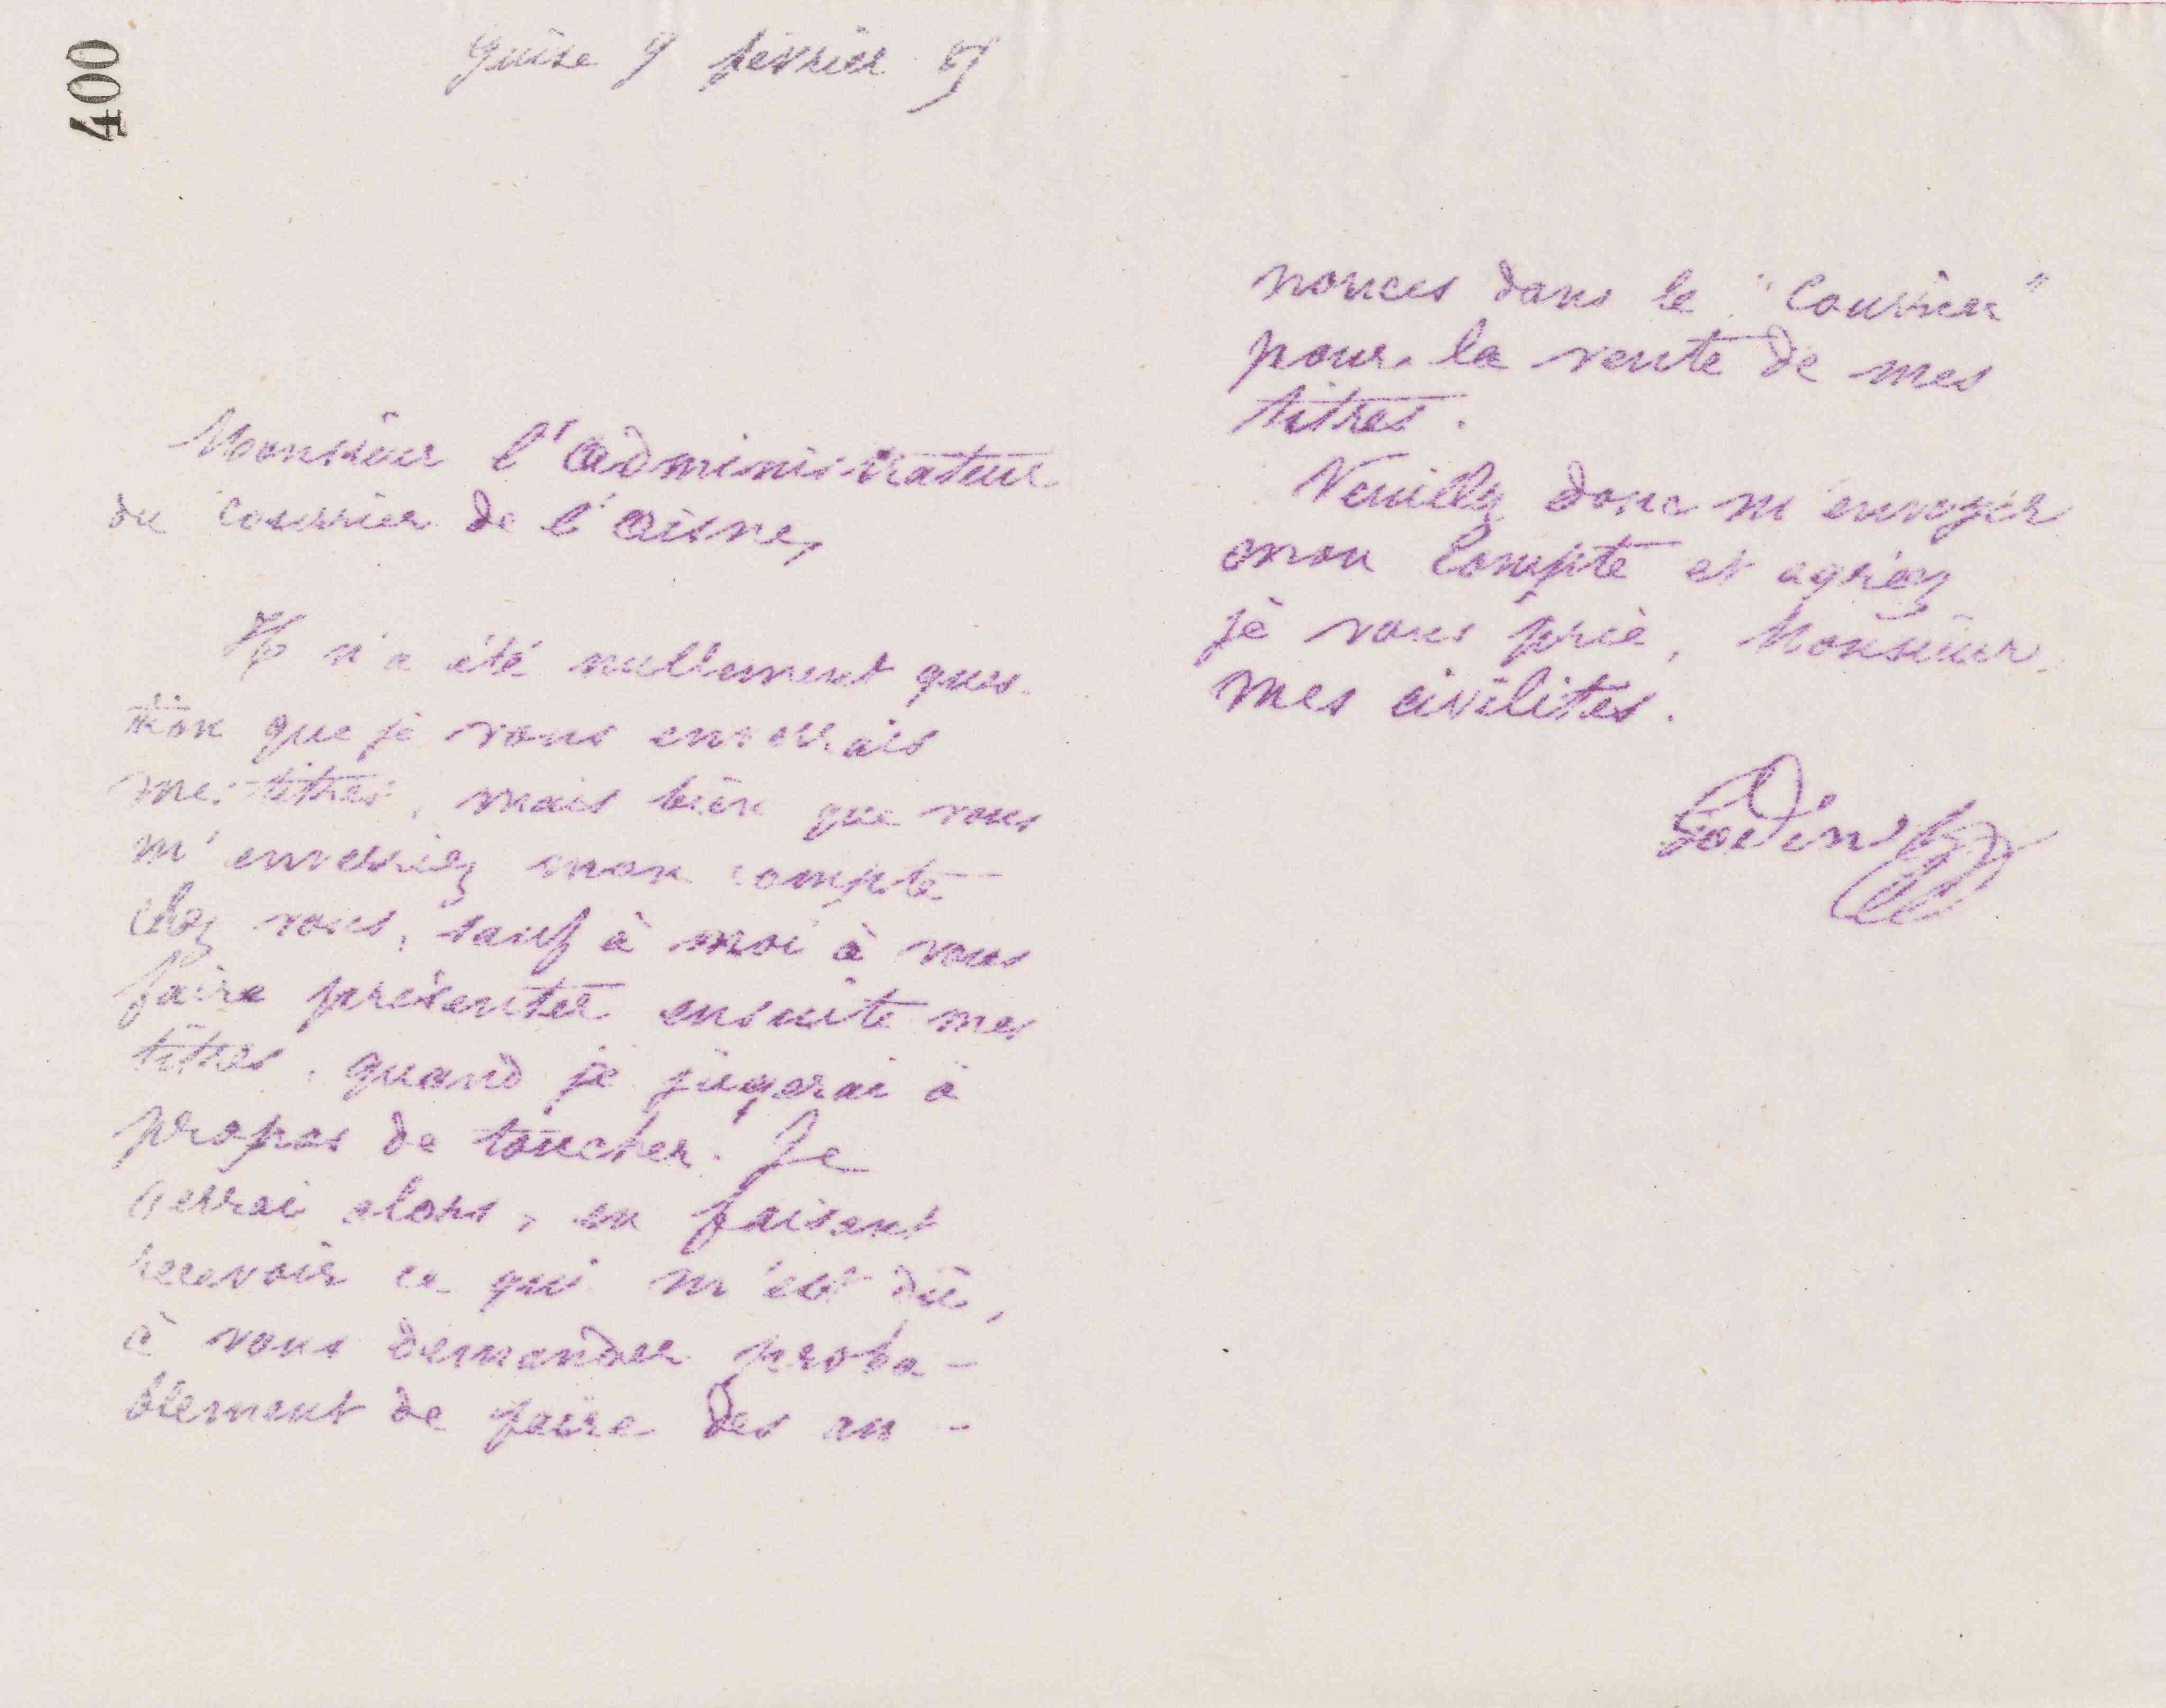 400
Guise 9 février 87
Monsieur l'administrateur
du Courrier de l'Aisne,
Il n'a été nullement ques-
tion que je vous enverrais
mes titres, mais bien que vous
m'enverriez mon compte
chez vous, sauf à moi à vous
faire présenter ensuite mes
titres, quand je jugerai à
propos de toucher. Je
verrai alors, en faisant
recevoir ce qui m'est dû,
à vous demander proba-
blement de faire des an-
nonces dans le "Courrier"
pour la vente de mes
titres.
Veuillez donc m'envoyer
mon compte et agréez
je vous prie, Monsieur,
mes civilités.
Godin